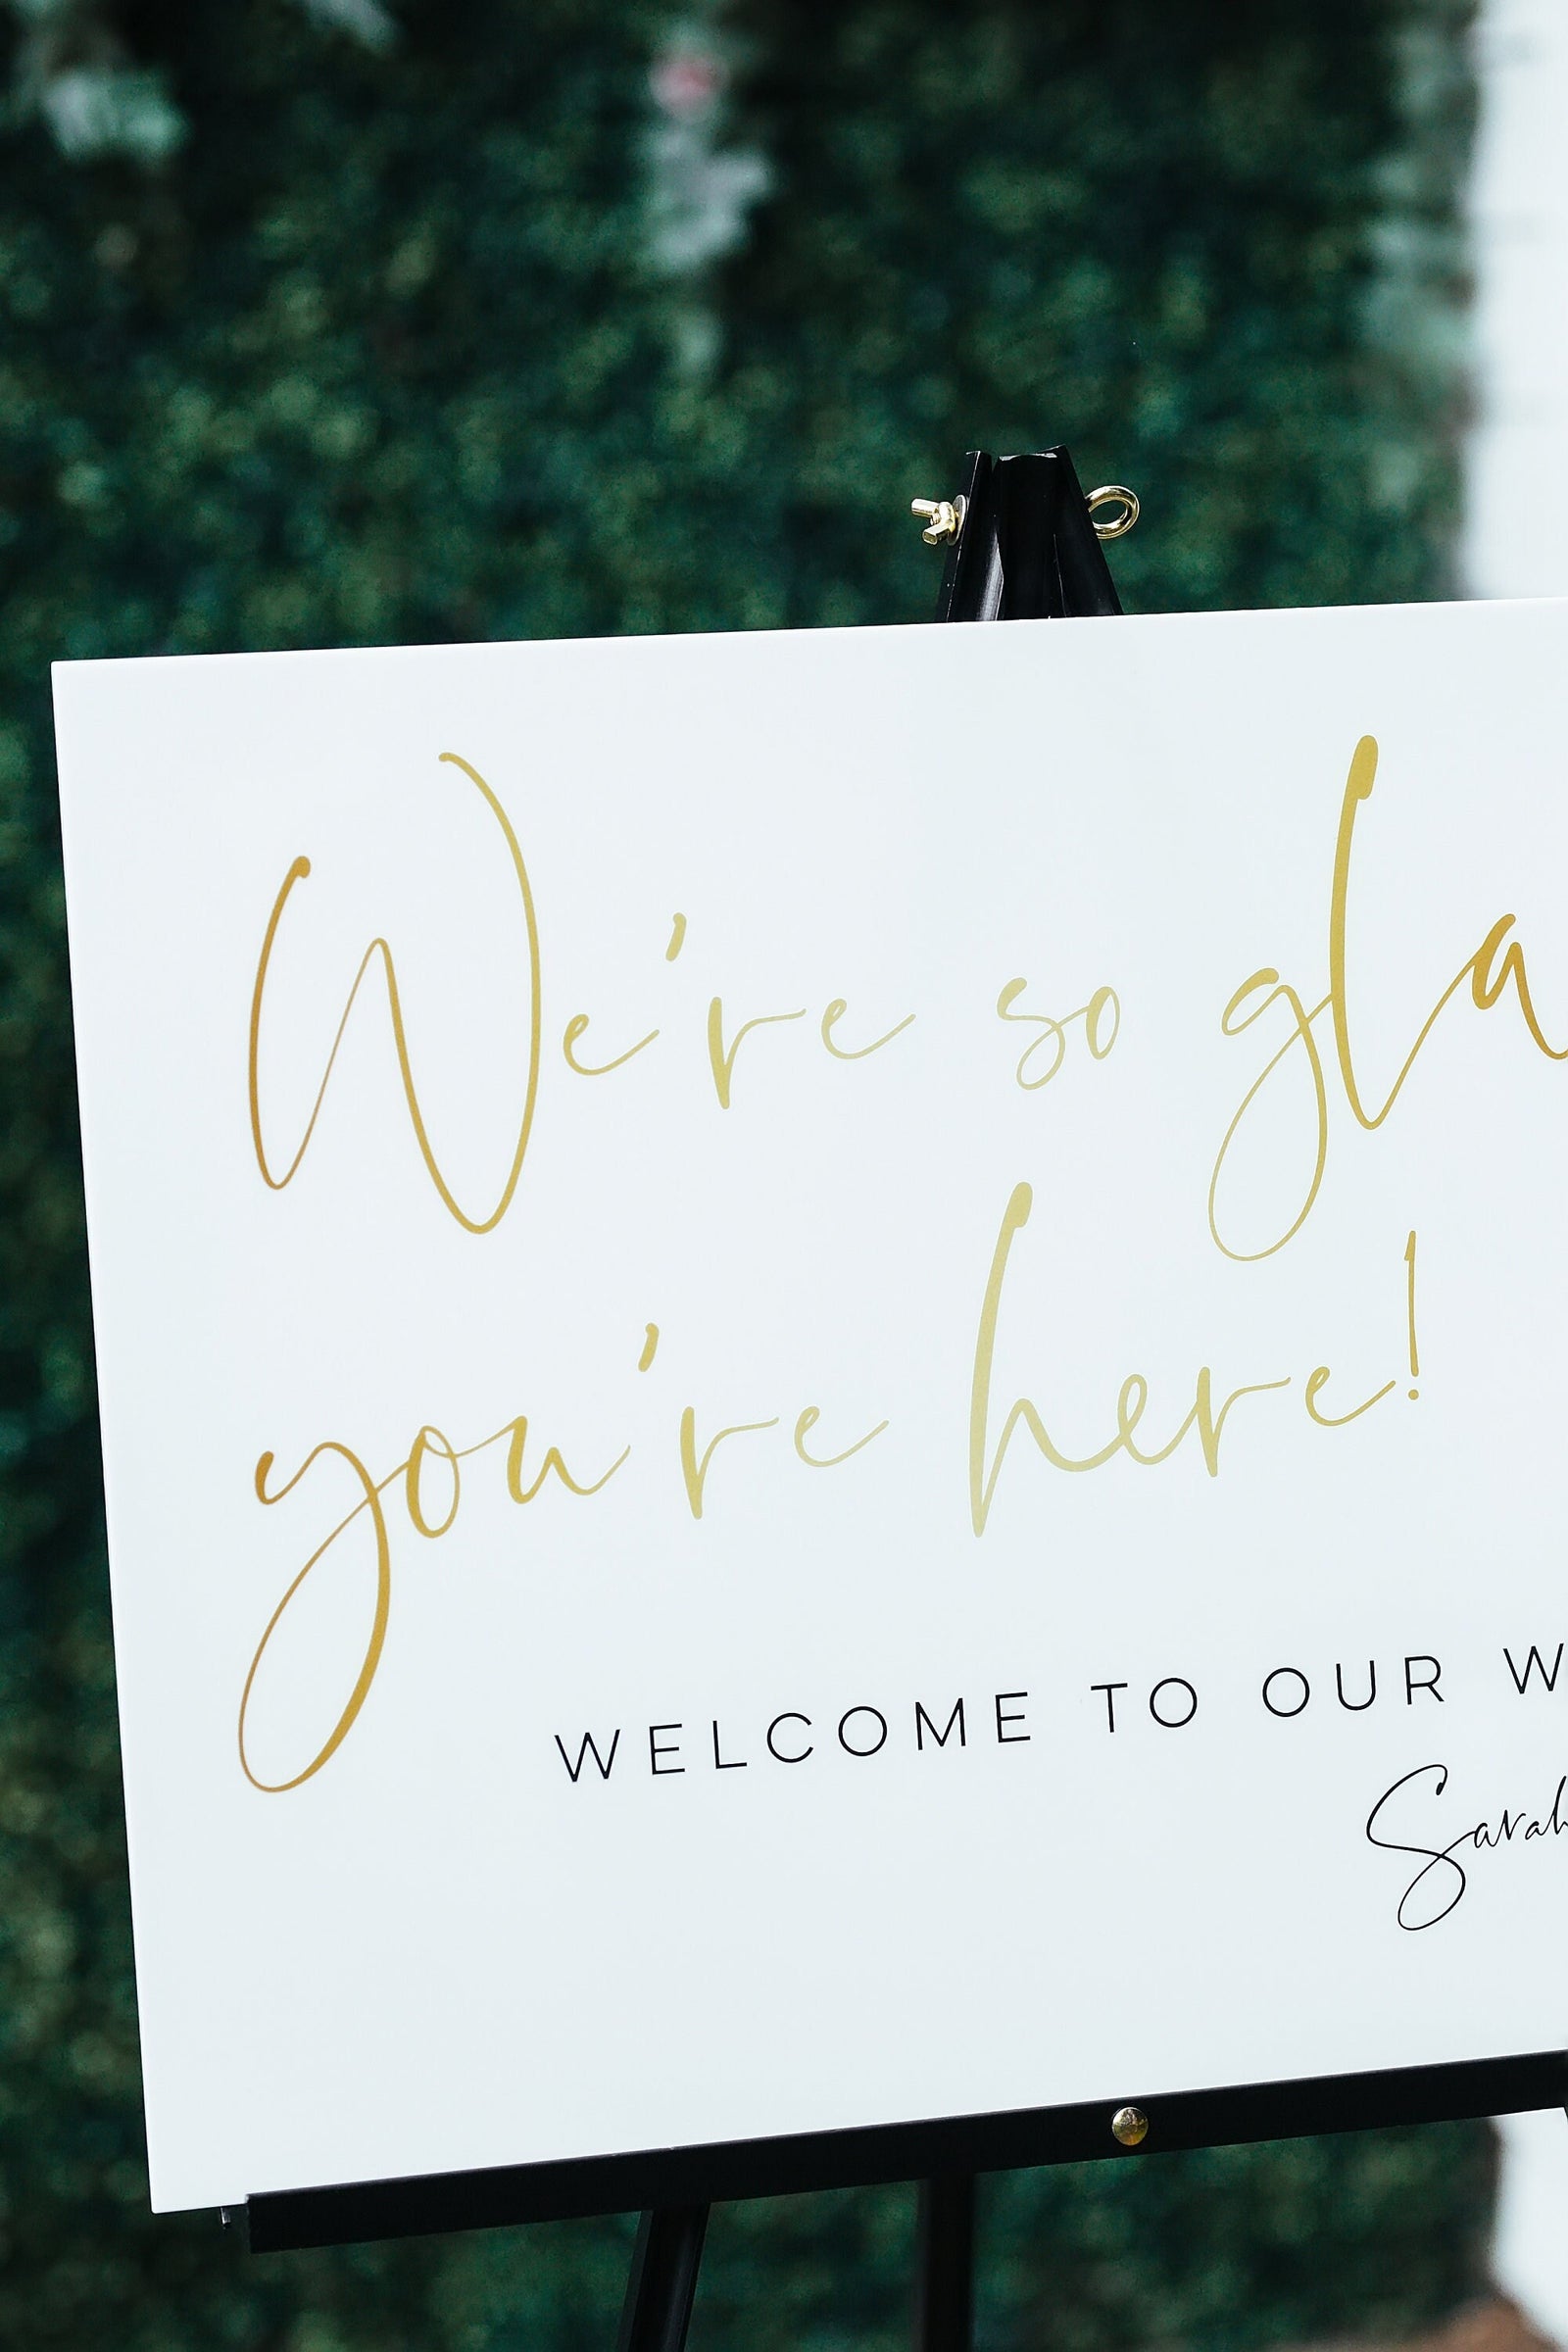 We're so gla
you're here!
WELCOME TO OUR W
Sarah